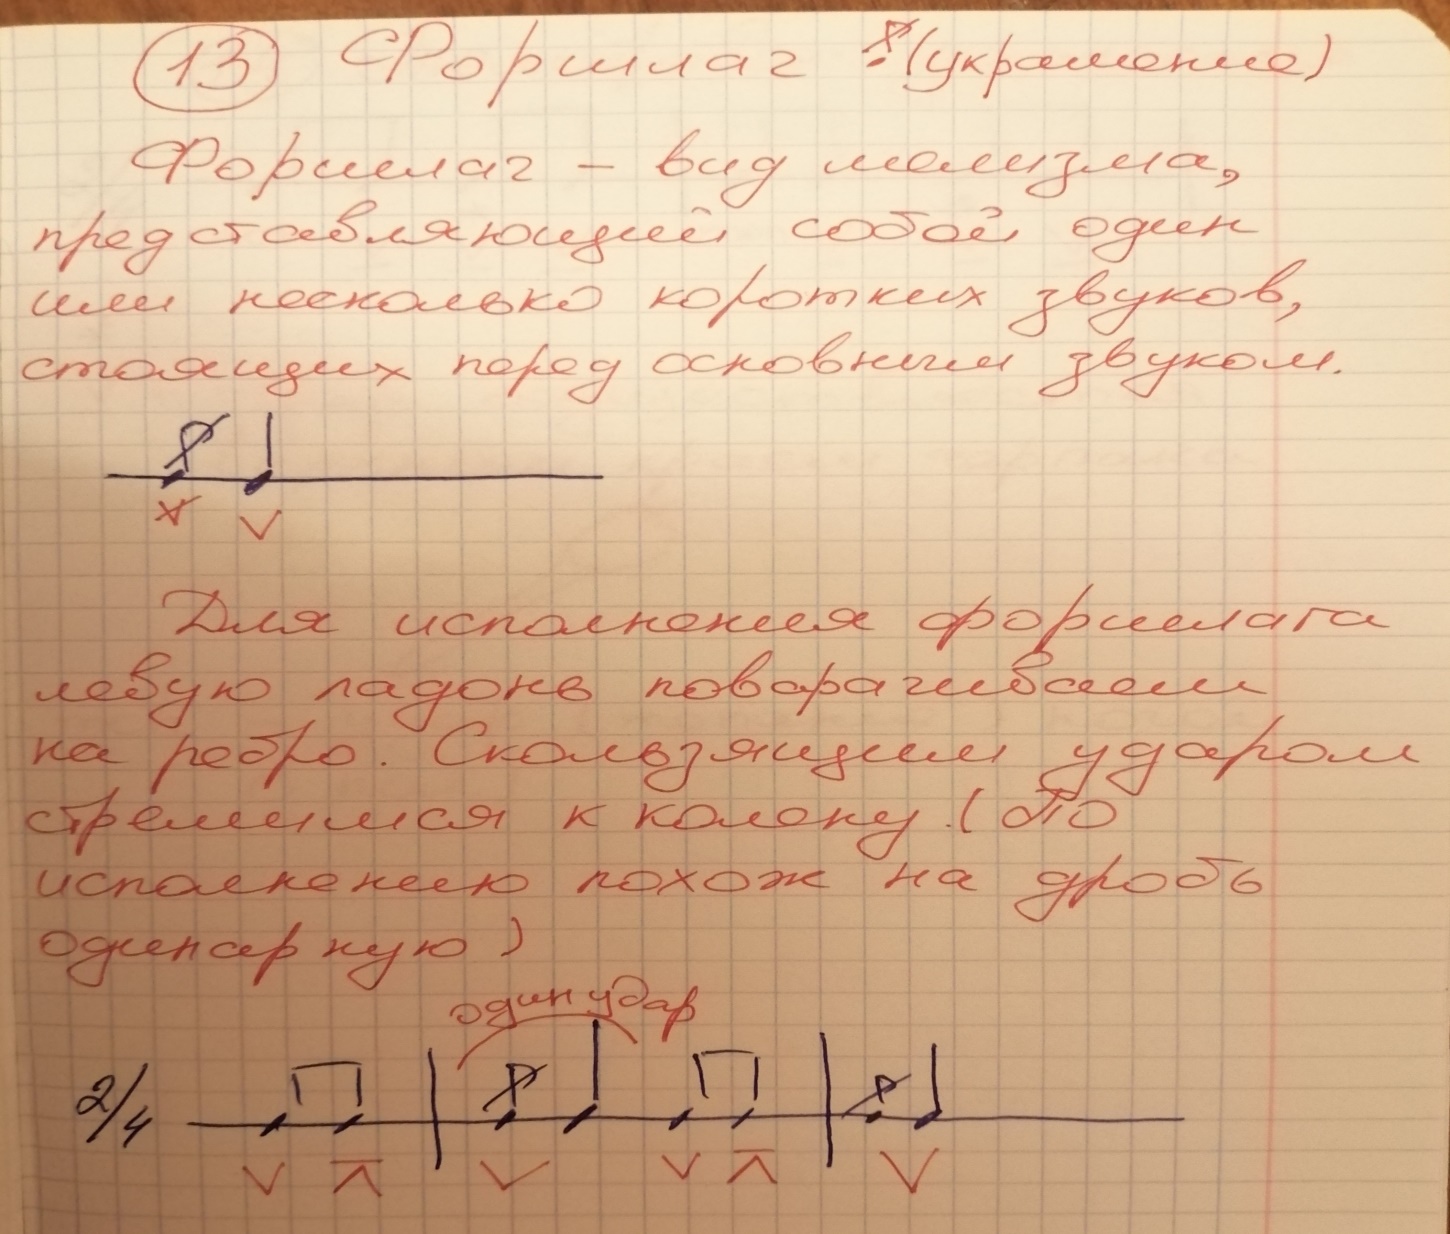 13 Форшлаг (украшение)
Форшлаг – вид мелизма,
представляющий собой один
или несколько коротких звуков,
стоящих перед основным звуком.
Для исполнения форшлага
левую ладонь поварачиваем
на ребро. Скользящим ударом
стремимся к колену. (По
исполнению похож на дробь
одинарную)
один удар
2/4